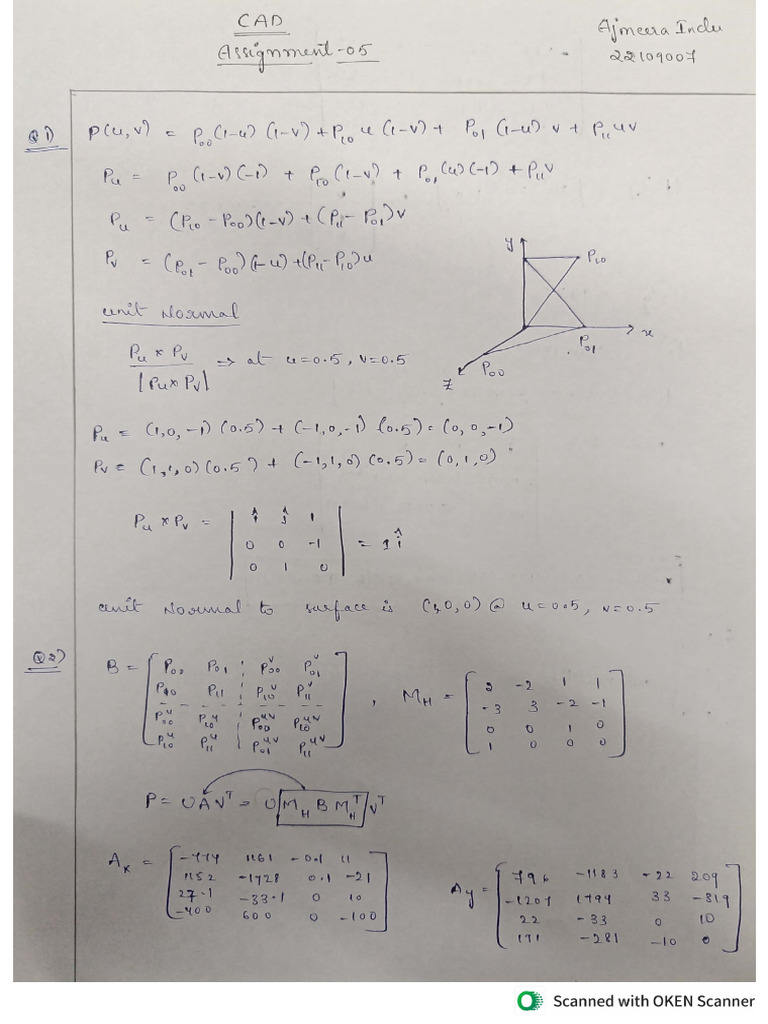 CAD
Assignment-05
Ajmeera Indu
22109007
Q1) P(u,v) = P00(1-u)(1-v)+P10 u(1-v)+ P01(1-u)v + P11uv
Pu = P00(1-v)(-1) + P10(1-v) + P01(u)(-1) + P11v
Pu = (P10 - P00)(1-v)+(P11-P01)v
Pv = (P01 - P00)(1-u)+(P11-P10)u
y
P10
x
P01
P00
Z
unit Normal
Pu*Pv / |Pu*Pv| => at u=0.5, v=0.5
Pu = (1,0,-1)(0.5)+(-1,0,-1)(0.5)=(0,0,-1)
Pv = (1,1,0)(0.5)+(-1,1,0)(0.5)=(0,1,0)
Pu*Pv = | î ĵ 1 |
0 0 -1 = 1î
0 1 0
unit Normal to surface is (1,0,0) @ u=0.5, v=0.5
Q2) B = [P00 P01 P00^v P01^v
P10 P11 P10^v P11^v
P00^u P10^u P00^uv P10^uv
P10^u P11^u P01^uv P11^uv]
, MH = [2 -2 1 1
-3 3 -2 -1
0 0 1 0
1 0 0 0]
P = UAV^T = U[MH B MH^T]V^T
Ax = [-774 1161 -0.1 11
1152 -1728 0.1 -21
27.1 -33.1 0 10
-400 600 0 -100]
Ay = [796 -1183 -22 209
-1207 1794 33 -319
22 -33 0 10
171 -281 -10 0]
Scanned with OKEN Scanner